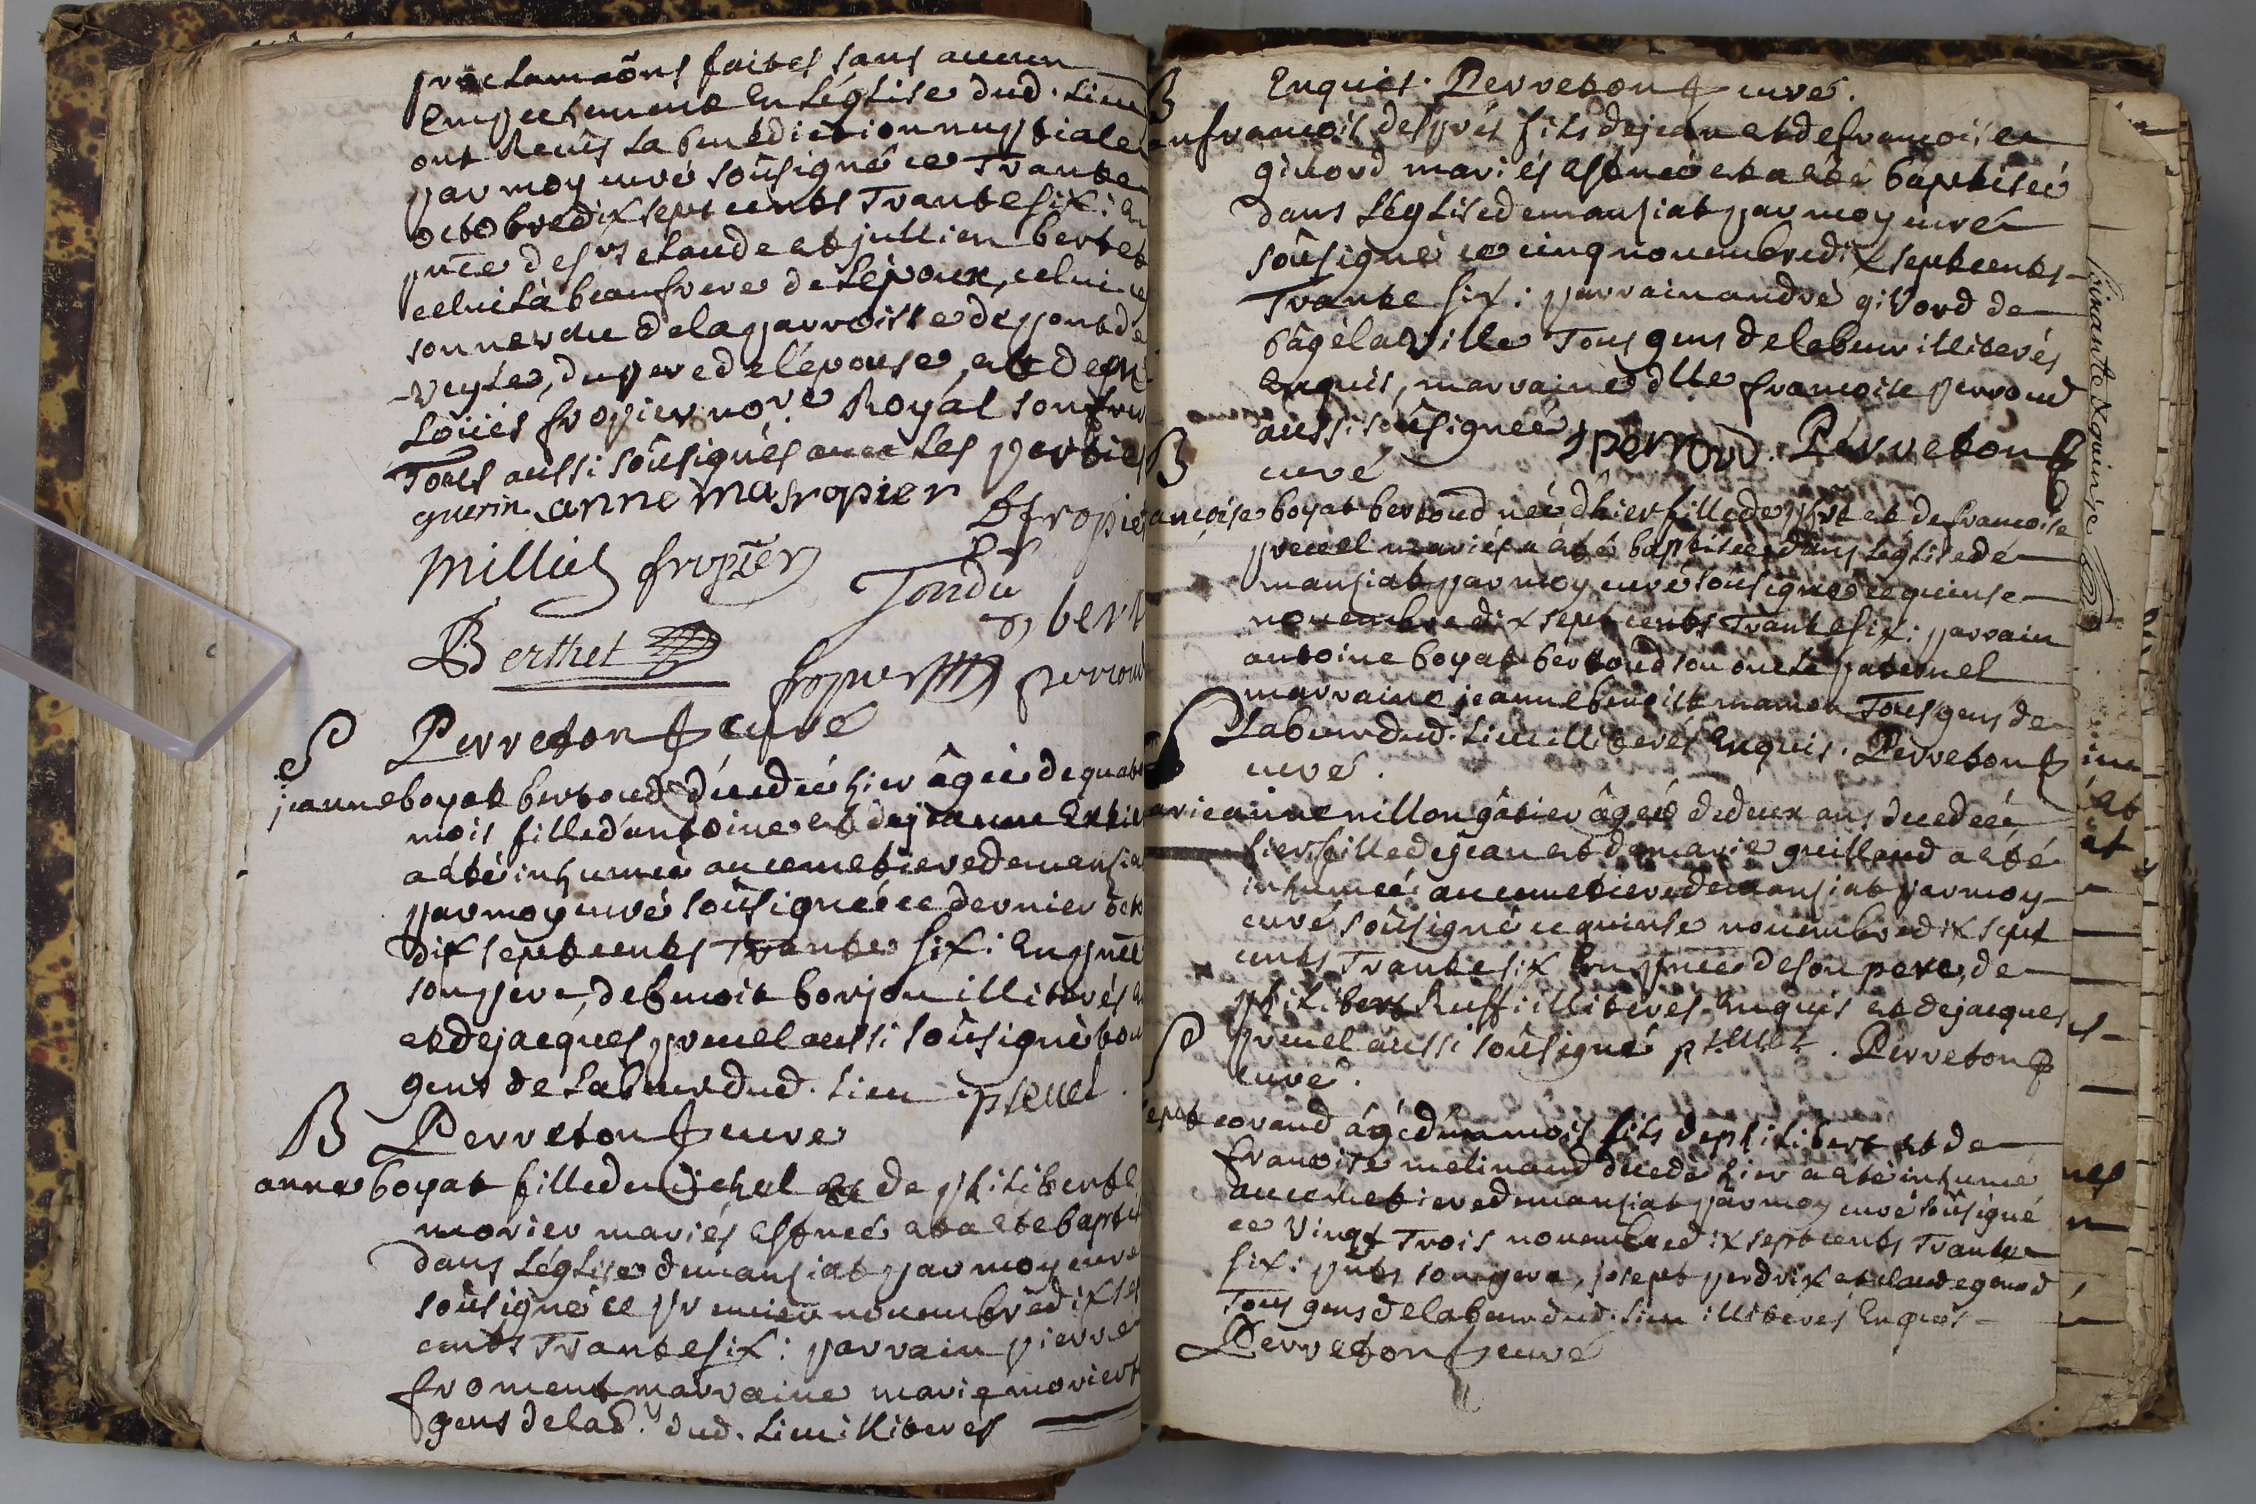 proclamaõns faites sans aucun
Empechement En Léglise dud. Lieu
ont Receüs La benediction nuptiale
par moy curé soûsigné ce Trante
octobre dix sept cents Trante six : En
pñce des srs claude et jullien bertet
celui Là beaufrere de Lépoux, celui cy
de la parroisse de pont de
Veyle, du pere de lépouse, et de sr
Loüés fropier nore Royal son frere
Tous aussi soûsignés avec Les parties
guerin anne ma fropier fropier
Milliet fropier
Tondu
bert
Berthet fropier perroud
Perreton curé
S
jeanne boyat bertoud décedée hier âgée de quatre
mois fille d'antoine et de jeanne
a eté inhumée au cemetiere de mansiat
par moy curé soûsigné ce dernier octo
dix sept cents Trante six : En pñce
son pere, de benoit borjon illiterés
et de jacques preuel aussi soûsigné tous
gens de Labeur dud. Lieu preuel
B Perreton curé
anne boyat fille de michel et de philiberte
morier mariés est née et a eté baptisée
dans Léglise de mansiat par moy curé
soûsigné ce premier novembre dix sept
cents Trante six : parrain pierre
froment marraine marie morier
gens de lab.r dud. Lieu illiterés
Enquis. Perreton curé.
B
françois després fils de jean et de françoise
givord mariés est neé et a eté baptiseé
dans Léglise de mansiat par moy curé
soûsigné ce cinq novembre dix sept cents
Trante six : parrain andré givord de
bâgé la Ville Tous gens de labeur illiterés
Enquis, marraine dlle françoise perroud
aussi soûsigneé perroud. Perreton
B curé
françoise boyat bertoud neé d'hier fille de et de françoise
preuel mariés a eté baptiseé dans Léglise de
mansiat par moy curé soûsigné ce quinse
novembre dix sept cents Trante six : parrain
antoine boyat bertoud son oncle paternel
marraine jeanne benoiste Tous gens de
Labeur dud. Lieu illiterés Enquis. Perreton
curé.
marie anne nillon gâtier âgeé de deux ans decedeé
hier fille de jean et de marie guilland a eté
inhumeé au cemetiere de mansiat par moy
curé soûsigné ce quinse novembre dix sept
cents Trante six En pñce de son pere, de
philibert Ruffi illiterés Enquis et de jacques
preuel aussi soûsigné preuel. Perreton
S curé.
corand âgé d'un mois fils de philibert et de
françoise melinand decedé hier a eté inhumé
au cemetiere de mansiat par moy curé soûsigné
ce Vingt Trois novembre dix sept cents Trante
six : pñts son pere, josept perdrix et claude genod
Tous gens de labeur dud. Lieu illiterés Enquis
Perreton curé